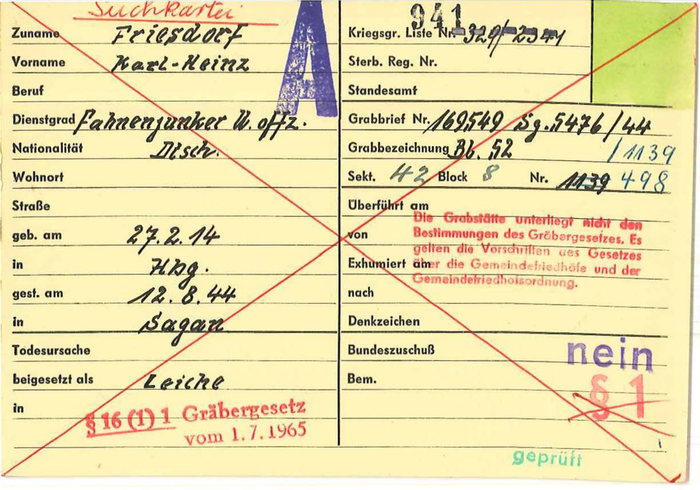 Suchkartei
Zuname Friesdorf
Vorname Karl-Heinz
Beruf
Dienstgrad Fahnenjunker U. offz.
Nationalität Dtsch.
Wohnort
Straße
geb. am 27.2.14
in Hbg.
gest. am 12.8.44
in Sagan
Todesursache
beigesetzt als Leiche
in
§ 16 (1) 1 Gräbergesetz
vom 1.7.1965
A
941
Kriegsgr. Liste Nr. 329/-2341
Sterb. Reg. Nr.
Standesamt
Grabbrief Nr. 169549 Sg. 5476/44
Grabbezeichnung Bl. 52 /1139
Sekt. 42 Block 8 Nr. 1139 498
Überführt am
von
Die Grabstätte unterliegt nicht den
Bestimmungen des Gräbergesetzes. Es
gelten die Vorschriften des Gesetzes
über die Gemeindefriedhöfe und der
Gemeindefriedhofsordnung.
Exhumiert am
nach
Denkzeichen
Bundeszuschuß nein
Bem. § 1
geprüft